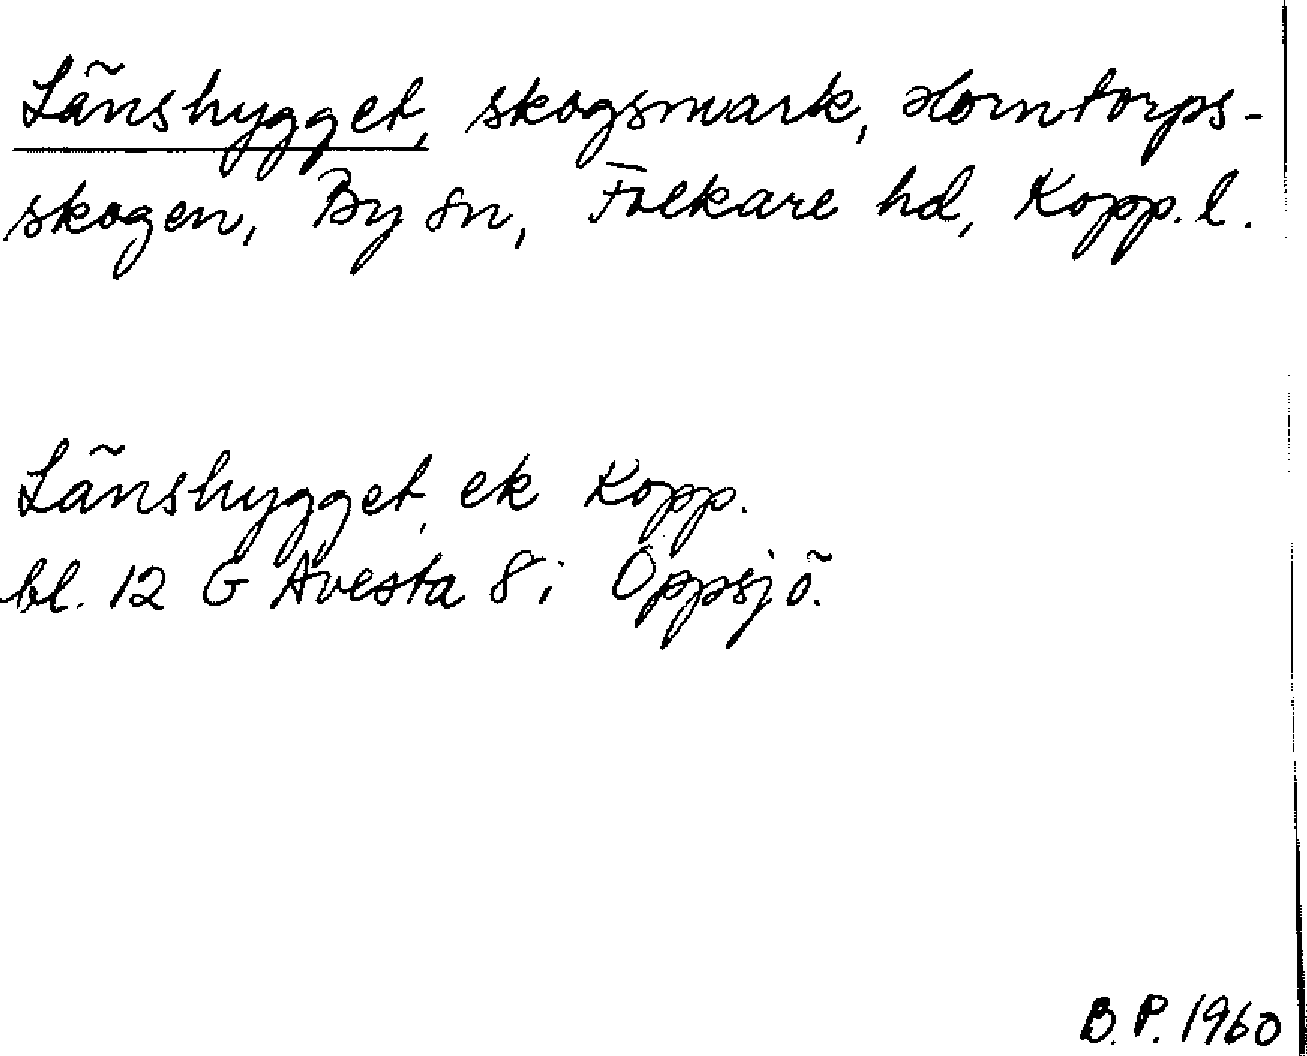 Länshygget, skogsmark, Horntorps-
skogen, By sn, Folkare hd, Kopp. l.
Länshygget, ek Kopp.
bl. 12 G Avesta 8 i Öppsjö.
B. P. 1960